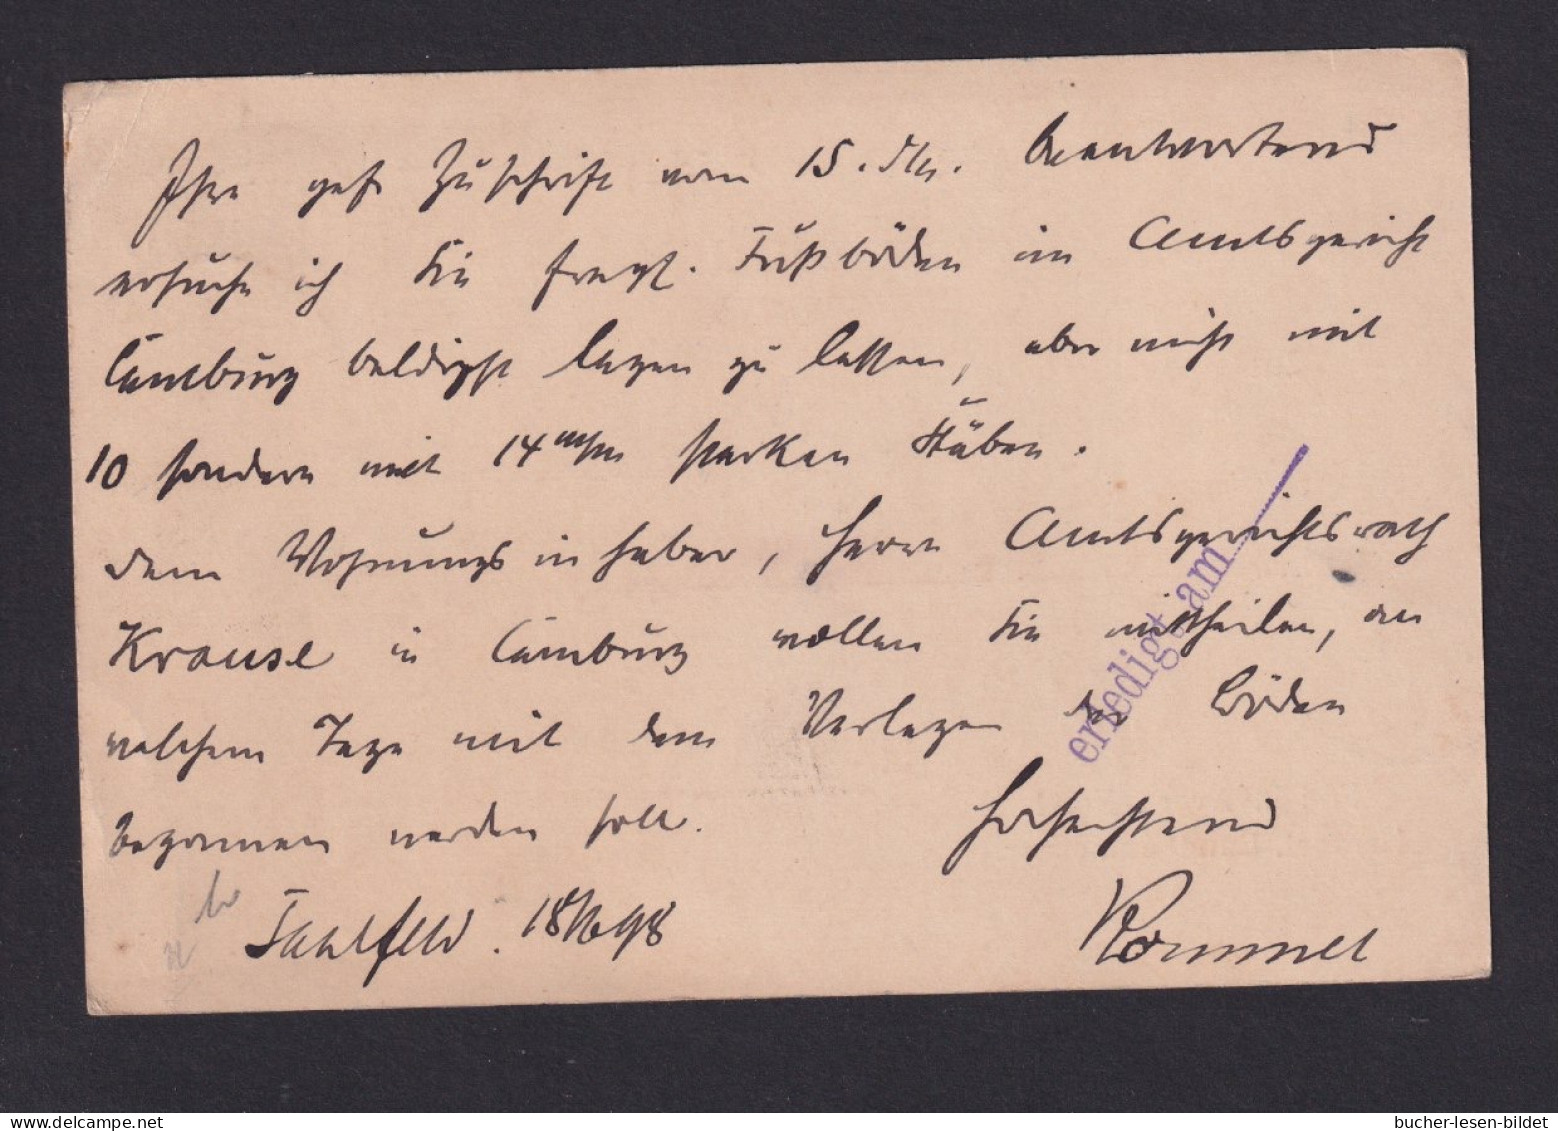 Ihre gef. Zuschrift vom 15. ds. beantwortend
ersuche ich Sie fragl. Fußböden im Amtsgericht
Camburg baldigst legen zu lassen, aber nicht mit
10 sondern mit 14 m/m starken Stäben.
dem Wohnungsinhaber, Herrn Amtsgerichtsrath
Krause in Camburg wollen Sie mittheilen, an
welchem Tage mit dem Verlegen der Böden
begonnen werden soll.
Hochachtend
Saalfeld. 18/6 98
Rommel
erledigt am
delcampe.net
bucher-lesen-bildet